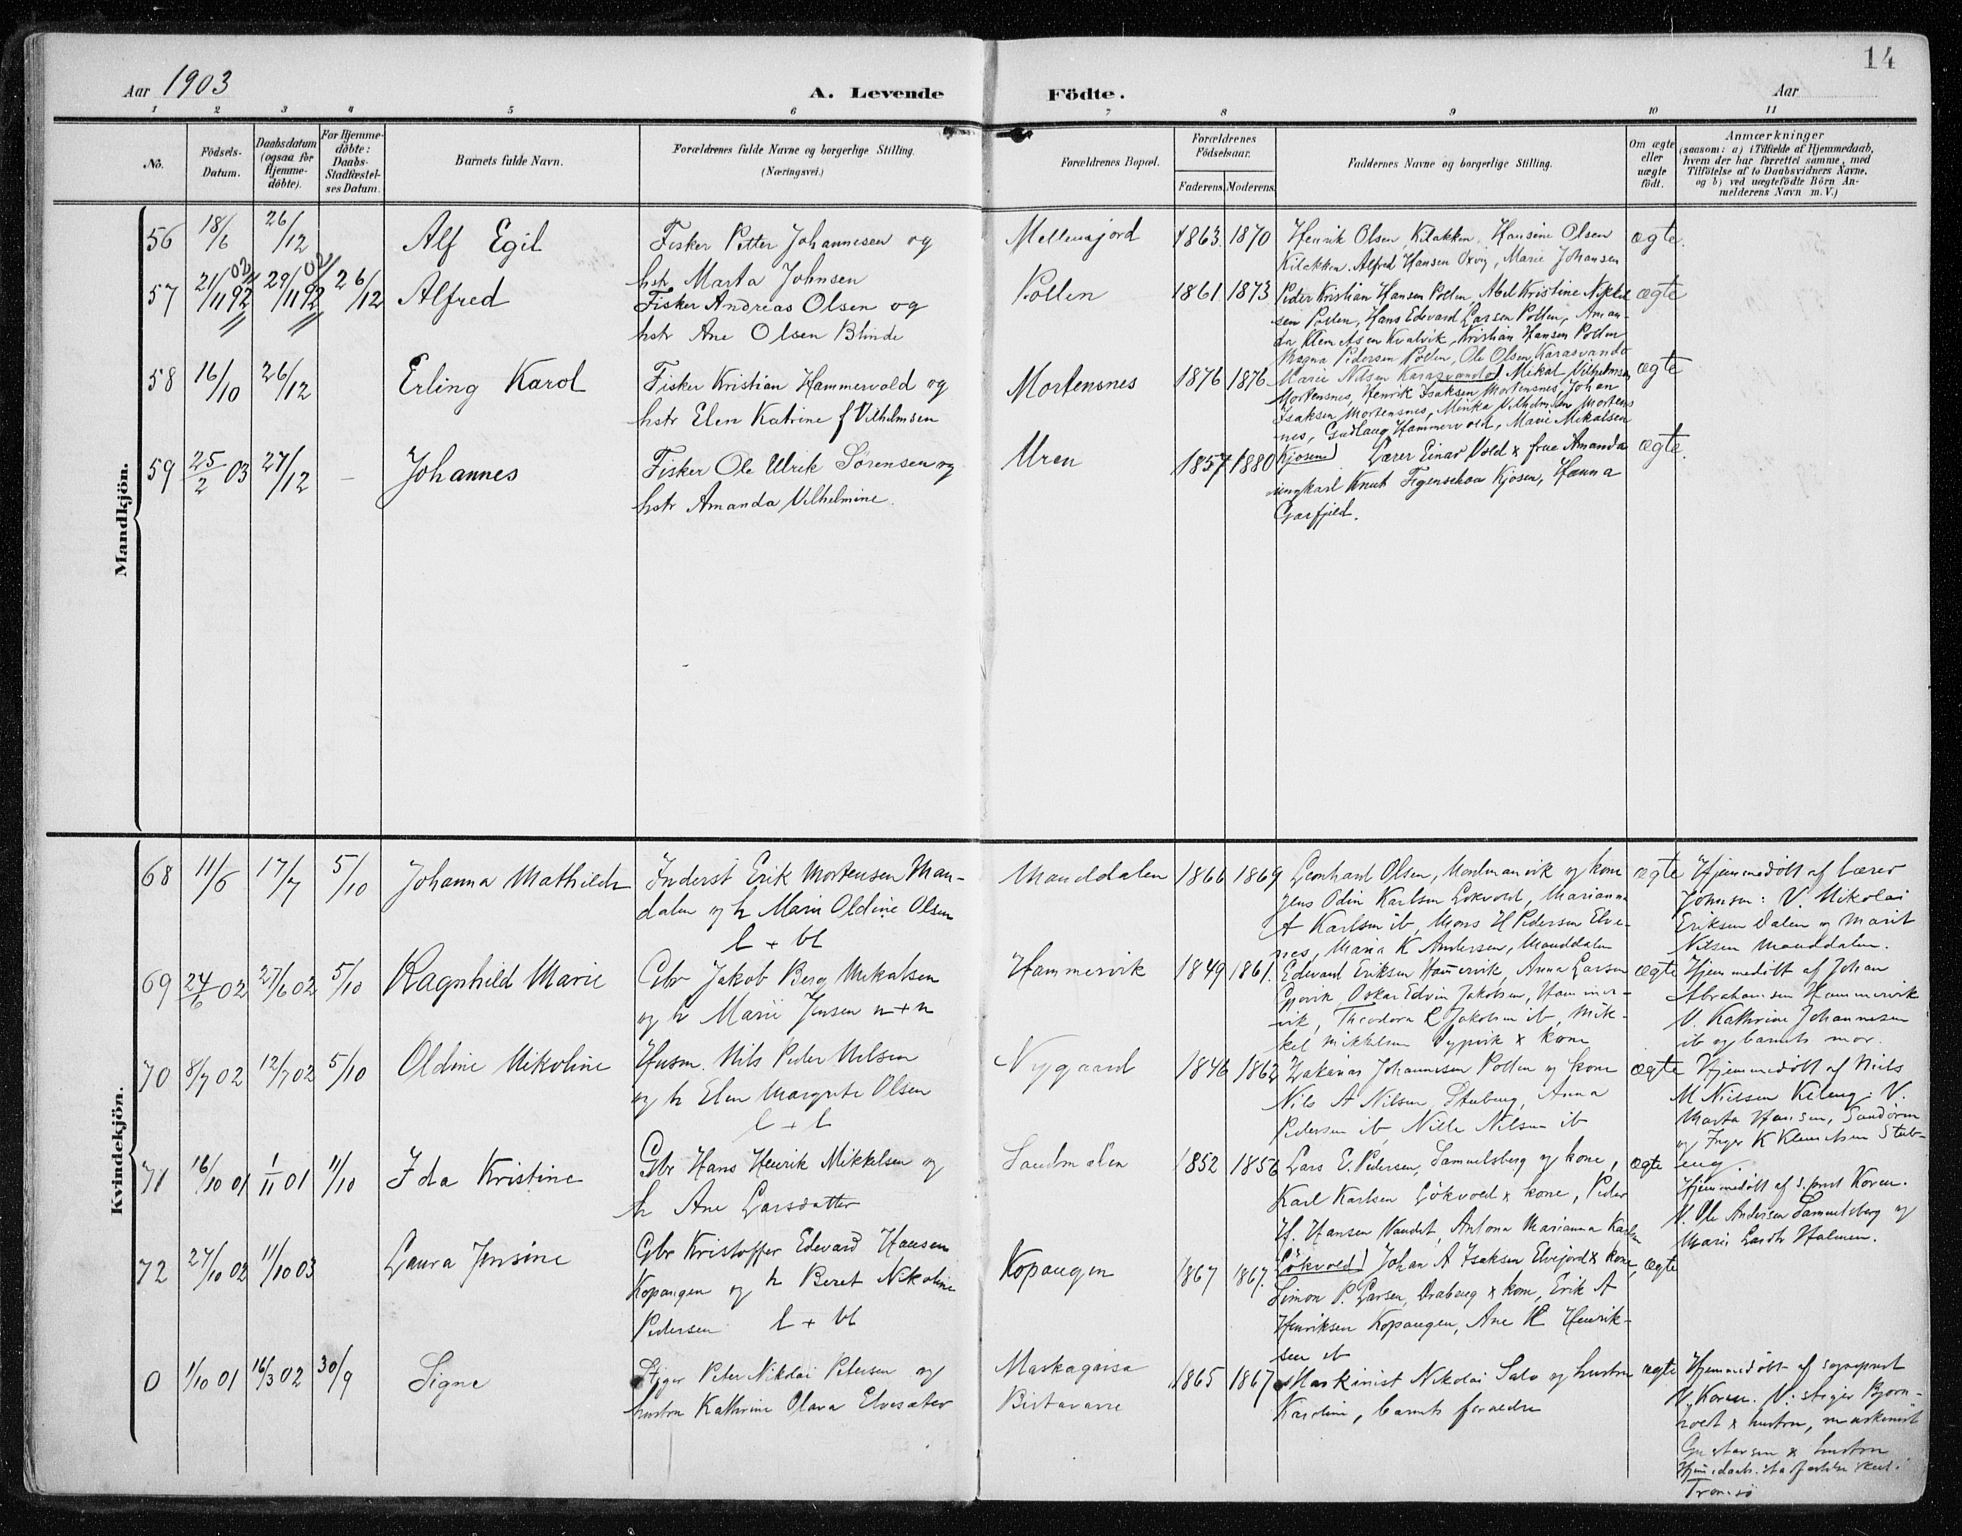 14
Aar 1903
A. Levende Födte.
Aar
1 2 3 4 5 6 7 8 9 10 11
No.
Födsels-Datum.
Daabsdatum (ogsaa for Hjemme-döbte).
For Hjemme-döbte: Daabs-Stadfæstel-ses Datum.
Barnets fulde Navn.
Forældrenes fulde Navne og borgerlige Stilling.
(Næringsvei.)
Forældrenes Bopæl.
Forældrenes Födselsaar.
Faderens. Moderens.
Faddernes Navne og borgerlige Stilling.
Om ægte eller uægte födt.
Anmærkninger
(saasom: a) i Tilfælde af Hjemmedaab,
hvem der har forrettet samme, med
Tilföielse af to Daabsvidners Navne,
og b) ved uægtefödte Börn An-
melderens Navn m. V.)
Mandkjön.
56 18/6 26/12 Alf Egil
Fisker Petter Johannesen og
hstr Marta Johnsen
Mellemjord 1863 1870
Henrik Olsen, Kilakken, Hansine Olsen
Kilakken. Alfred Hansen Oxvig, Marie Johansen
ægte.
57 21/11 29/11 26/12 Alfred
Fisker Andreas Olsen og
hstr Ane Olsen Blinde
Pollen 1861 1873
Peder Kristian Hansen Pollen, Abel Kristine
sen Pollen, Hans Edevard Larsen Pollen, Aman-
da Klemetsen Kvalvik, Kristian Hansen Pollen
Magna Pedersen Pollen, Ole Olsen Karasvando
Marie Nilsen Karasvando
ægte
58 16/10 26/12 Erling Karol
Fisker Kristian Hammervold og
hstr Elen Katrine f Vilhelmsen
Mortensnes 1876 1876
Mikal Vilhelmsen
Mortensnes, Henrik Isaksen Mortensnes, Johan
Isaksen Mortensnes, Minka Vilhelmsen Mortens
nes, Gudlaug Hammervold, Marie Mikalsen
Kjosen
ægte
59 25/2 03 27/12 – Johannes
Fisker Ole Ulrik Sörensen og
hstr Amanda Vilhelmine.
Uren 1857 1880
Lærer Einar Vold x frue Amanda
ungkarl Knut Figenschou Kjosen, Hanna
Garfjeld.
ægte.
Kvindekjön.
68 11/6 17/7 5/10 Johanna Mathilde
Inderst Erik Mortensen Man-
dalen og h Marie Oldine Olsen
l + bl
Manddalen 1866 1869
Leonhard Olsen, og kone
Jens Odin Karlsen Lökvold, Marianna
A Karlsen ib, Mons H Pedersen Elve-
nes, Maria K Andersen, Manddalen
ægte
Hjemmedöbt af Lærer
Johnsen: V. Nikolai
Eriksen Dalen og Marit
Nilsen Manddalen.
69 24/6 02 27/6 02 5/10 Ragnhild Marie
Gbr Jakob Berg Mikalsen
og h Marie Jensen n + n
Hammervik 1849 1861.
Edvard Eriksen Hamervik, Anna Larsen
Gjøvik, Oskar Edvin Jakobsen, Hammer-
vik, Theodora R Jakobsen ib, Mik-
kel Mikkelsen Dypvik x kone
ægte
Hjemmedöbt af Johan
Abrahamsen Hammervik
V. Kathrine Johannesen
ib og barnets mor.
70 8/7 02 12/7 02 5/10 Oldine Nikoline
Husm. Nils Peder Nilsen
og h Elen Margrete Olsen
l + l
Nygaard 1846 1862
Zakarias Johannesen Pollen og kone
Nils A Nilsen, Stubeng, Anna
Pedersen ib, Nille Nilsen ib
ægte
Hjemmedöbt af Niels
M Nielsen Keleng. V.
Marta Hansen, Sandören
og Inger K Klemetsen Stub-
eng.
71 16/10 01 1/11 01 11/10 Ida Kristine
Gbr Hans Henrik Mikkelsen og
h Ane Larsdatter
Sandmælen 1852 1856
Lars E. Pedersen, Samuelsberg og kone,
Karl Karlsen Lökvold x kone, Peder
H. Hansen Vandet, Antona Marianna Karlsen
Lökvold
ægte
Hjemmedöbt af S.prest Koren.
V. Ole Andersen Samuelsberg og
Marie Holmen.
72 27/10 02 11/10 03 Laura Jensine
Gbr Kristoffer Edevard Hansen
Kopangen og h Beret Nikoline
Pedersen l + bl
Kopangen 1867 1867.
Johan A Isaksen Elvejord x kone,
Simon P. Larsen, Drabeng x kone, Erik A
Henriksen Kopangen, Ane H Henrik-
sen ib
ægte
0 1/10 01 16/3 02 30/9 Signe
Stiger Peter Nikolai Petersen og
hustru Kathrine Olava Elvesæter
Maskagaisa
Birtavarre
1865 1867
Maskinist Nikolai Salo og hustru
Karoline, barnets foreldre
ægte
Hjemmedöbt af sogneprest
V. Koren. V. stiger Bjorn-
holdt x hustru, maskinist
Gustavsen x hustru
Tromsö